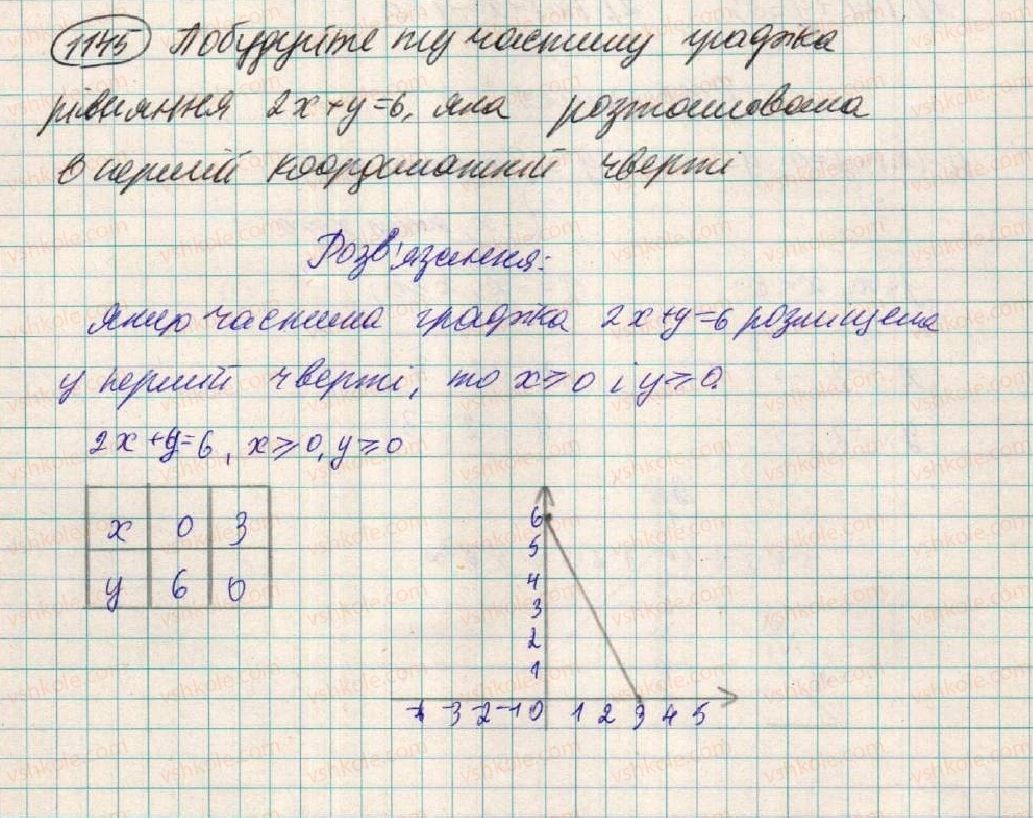 1145 Побудуйте ту частину графіка
рівняння 2x+y=6, яка розташована
в першій координатній чверті
Розв'язання:
Якщо частина графіка 2x+y=6 розміщена
у першій чверті, то x≥0 і y≥0.
2x+y=6, x≥0, y≥0
x 0 3
y 6 0
6
5
4
3
2
1
-4 -3 -2 -1 0 1 2 3 4 5
vshkole.com